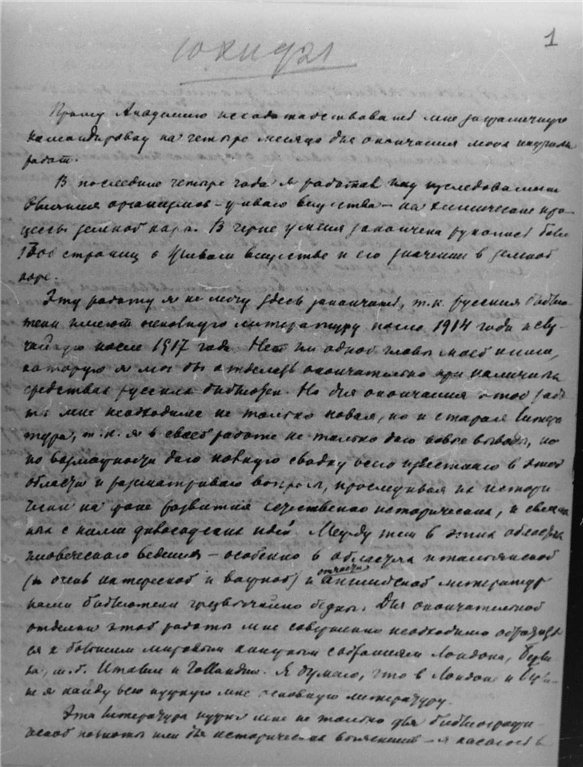 1
Прошу Академию исходатайствовать мне заграничную
командировку на четыре месяца для окончания моих научных
работ.
В последние четыре года я работал над исследованием
влияния организмов – живого вещества – на химические про-
цессы земной коры. В черне у меня закончена рукопись более
страниц о живом веществе и его значении в земной
коре.
Эту работу я не могу здесь закончить, т.к. русские библио-
теки имеют основную литературу после 1914 года и слу-
чайную после 1917 года. Нет ни одной главы моей книги,
которую я мог бы отделать окончательно при наличных
средствах русских библиотек. Но для окончания этой рабо-
ты мне необходима не только новая, но и старая литера
тура, т.к. я в своей работе не только даю новые выводы, но
по возможности даю полную сводку всего известного в этой
области и рассматриваю вопросы, прослеживая их истори
чески на фоне развития естественно исторических, и связан
ных с ними философских идей. Между тем в этих областях
человеческого ведения – особенно в областях итальянской
(и очень интересной и важной) и отчасти английской литературы
наши библиотеки чрезвычайно бедны. Для окончательной
отделки этой работы мне совершенно необходимо обратить
ся к большим мировым книжным собраниям Лондона,
м.б. Италии и Голландии. Я думаю, что в Лондоне и
не я найду всю нужную мне основную литературу.
Эта литература нужна мне не только для библиографи-
ческой полноты или для исторических выяснений – я касаюсь в